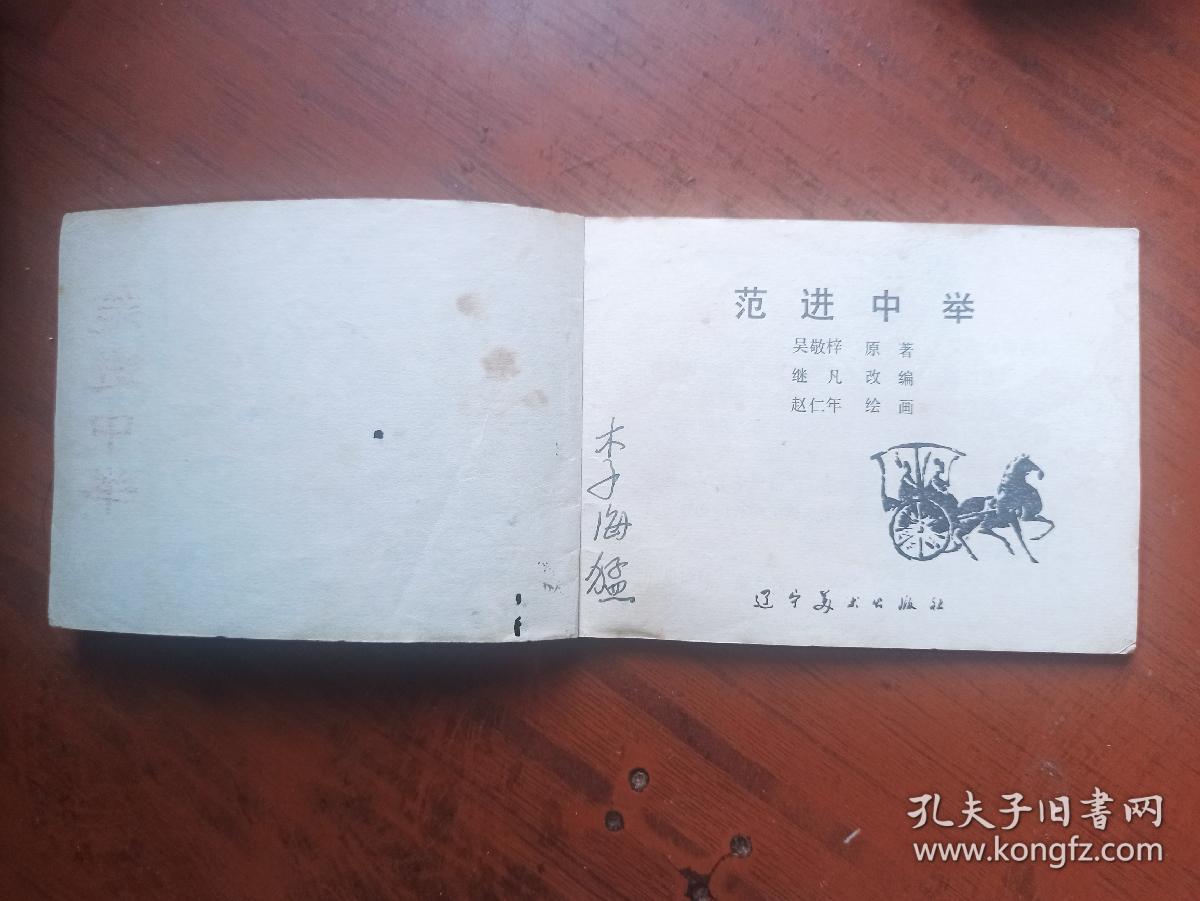 范进中举
吴敬梓 原著
继凡 改编
赵仁年 绘画
木子海猛
辽宁美术出版社
孔夫子旧書网
www.kongfz.com